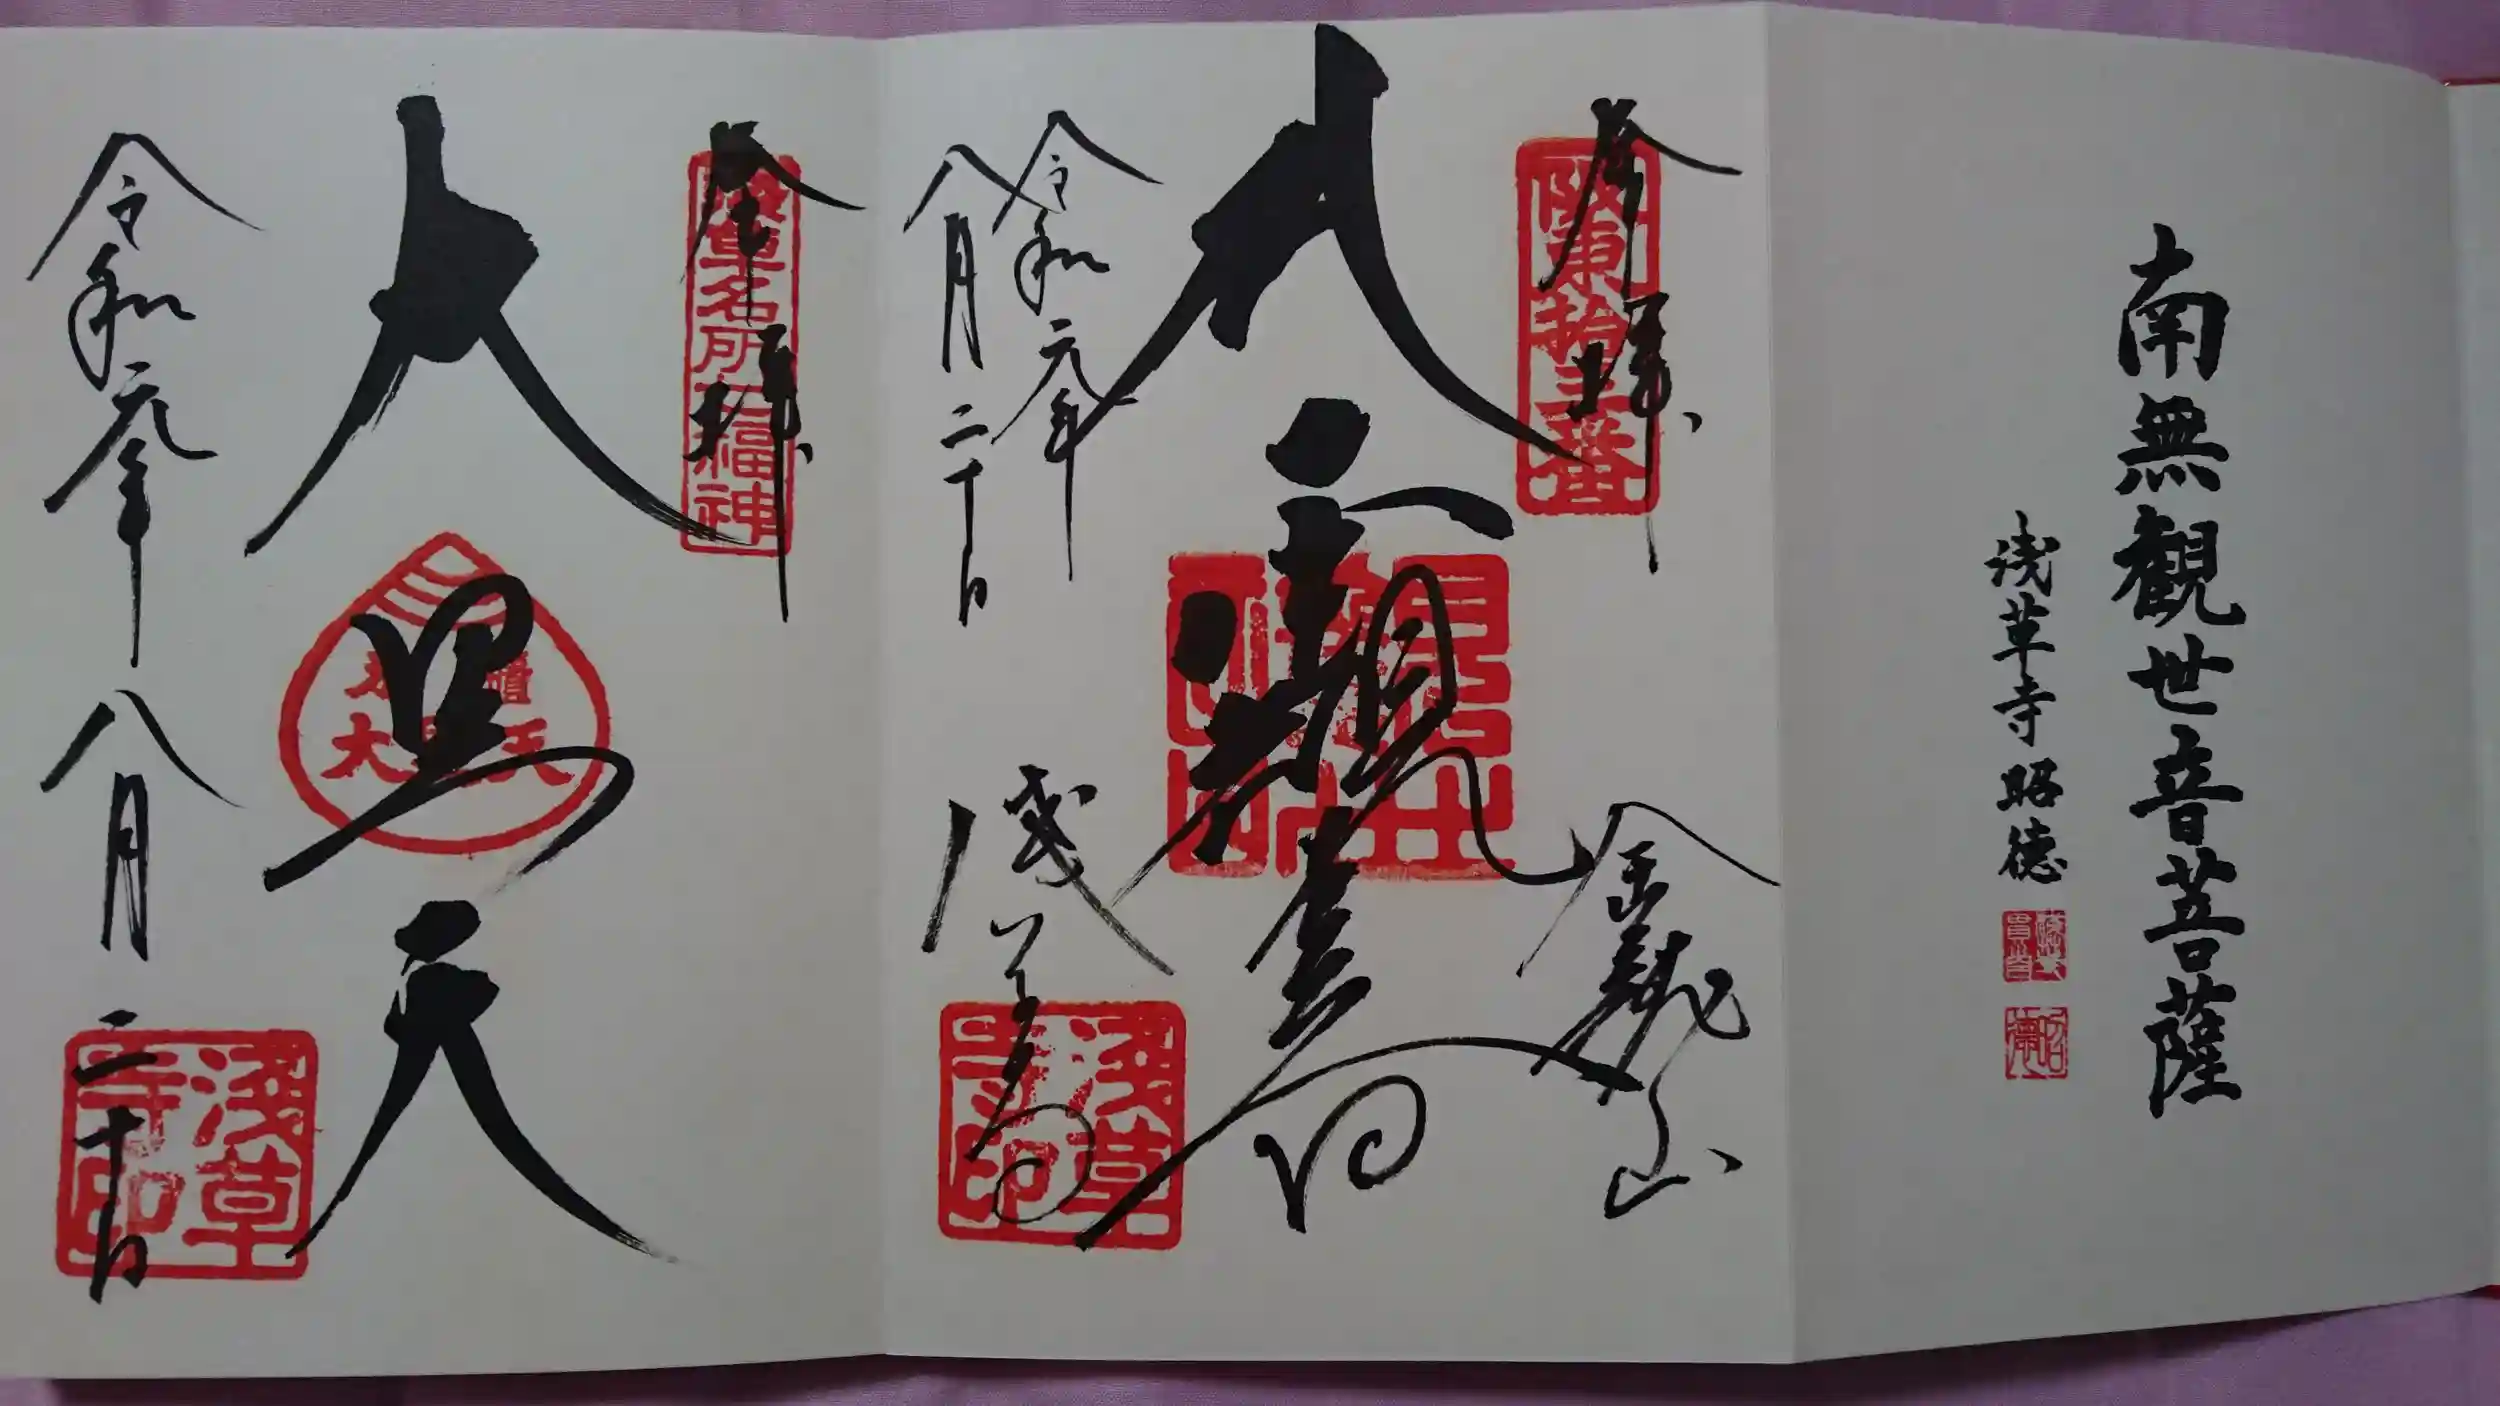 南無観世音菩薩
浅草寺 昭德
奉拝
阪東拾三番
大悲
金龍山
浅草寺
令和元年
八月二十日
浅草寺印
奉拝
浅草名所七福神
大黒天
大黒天
令和元年八月二十日
浅草寺印